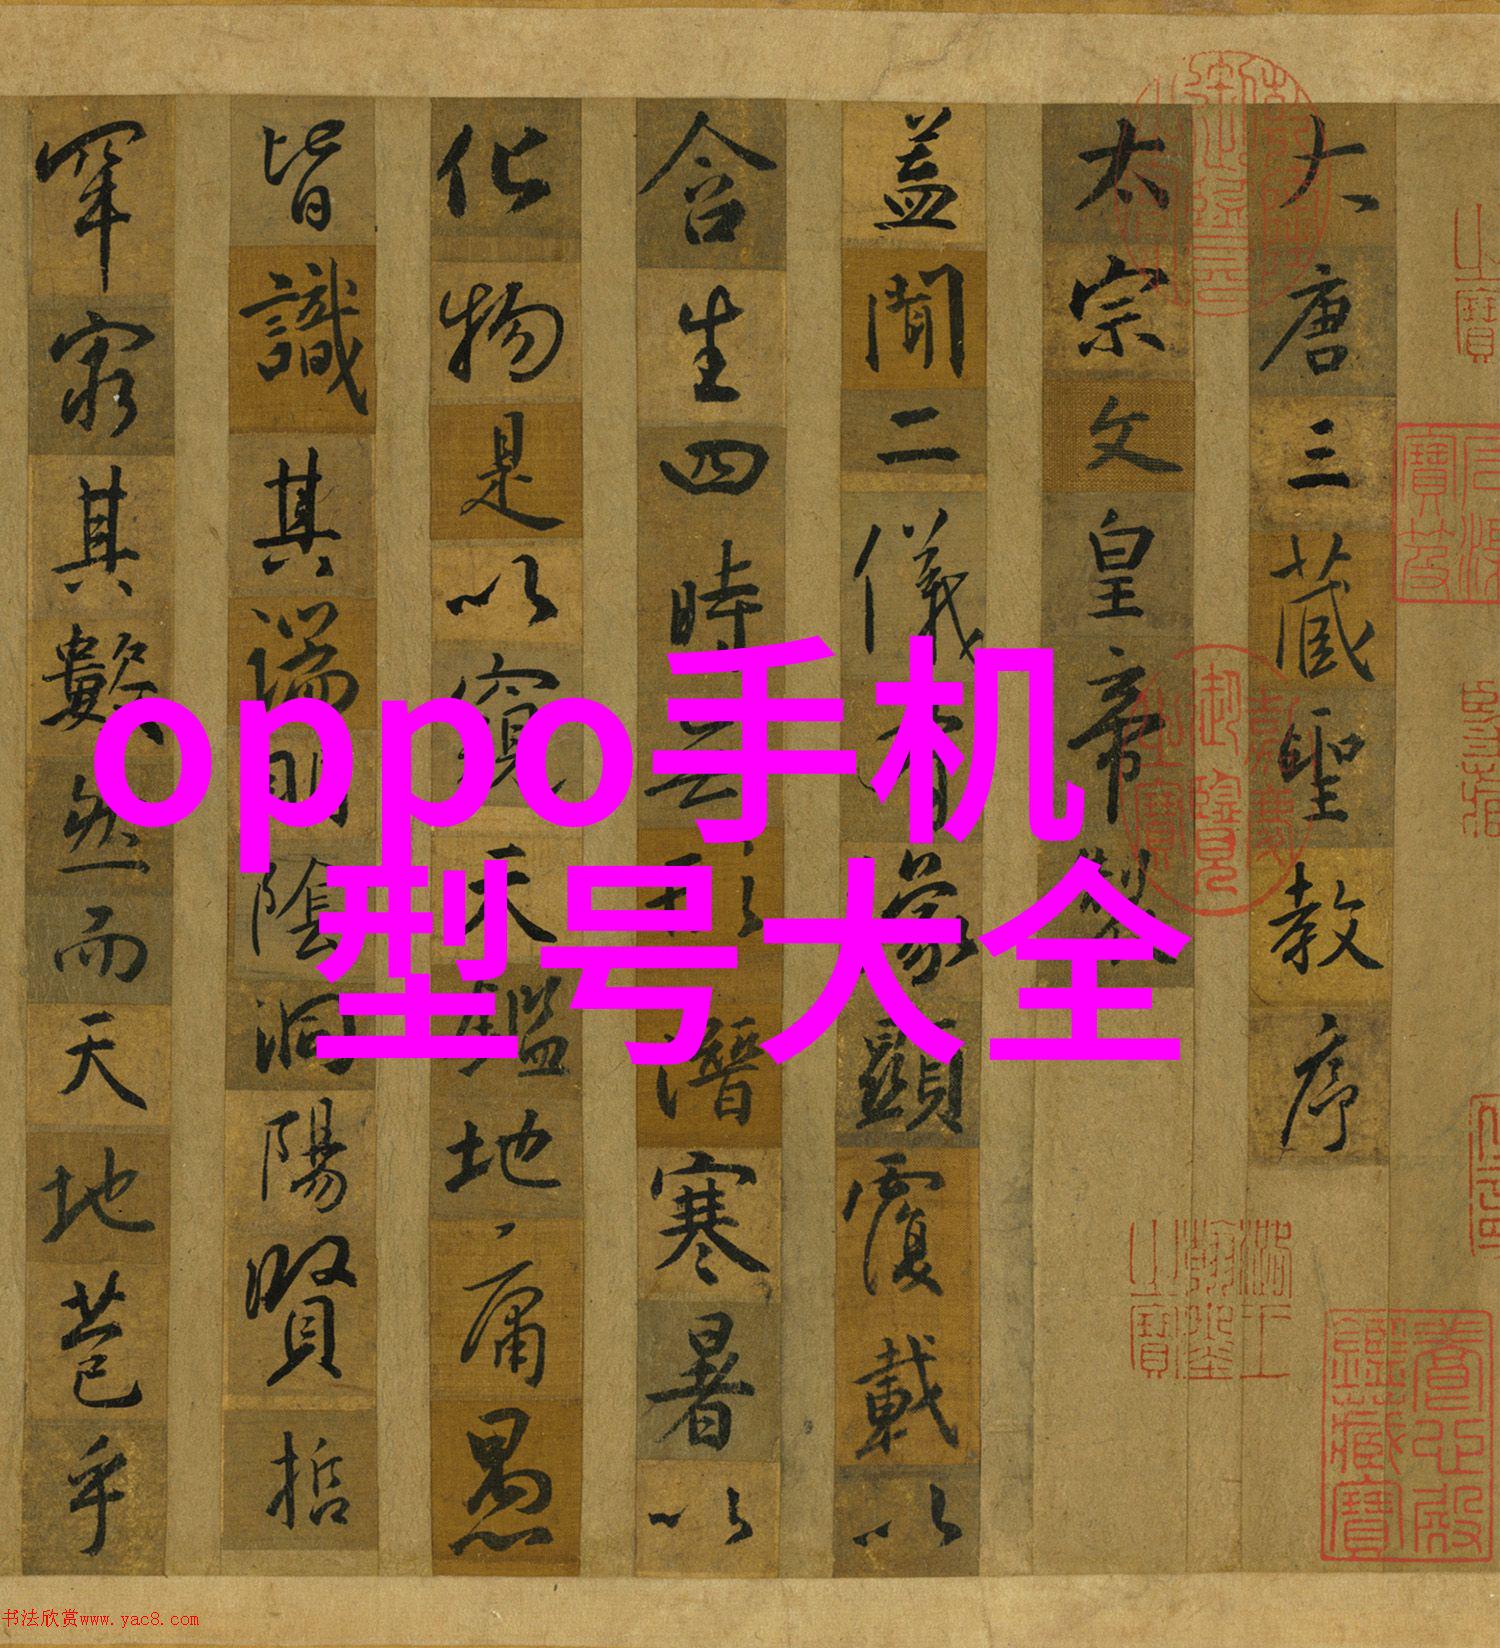 oppo手机
型号大全
大唐三藏聖教序
太宗文皇帝製
蓋聞二儀有象顯覆載以
含生四時無形潛寒暑以
化物是以窺天鑑地庸愚
皆識其端明陰洞陽賢哲
罕窮其數然而天地苞乎
书法欣赏www.yac8.com